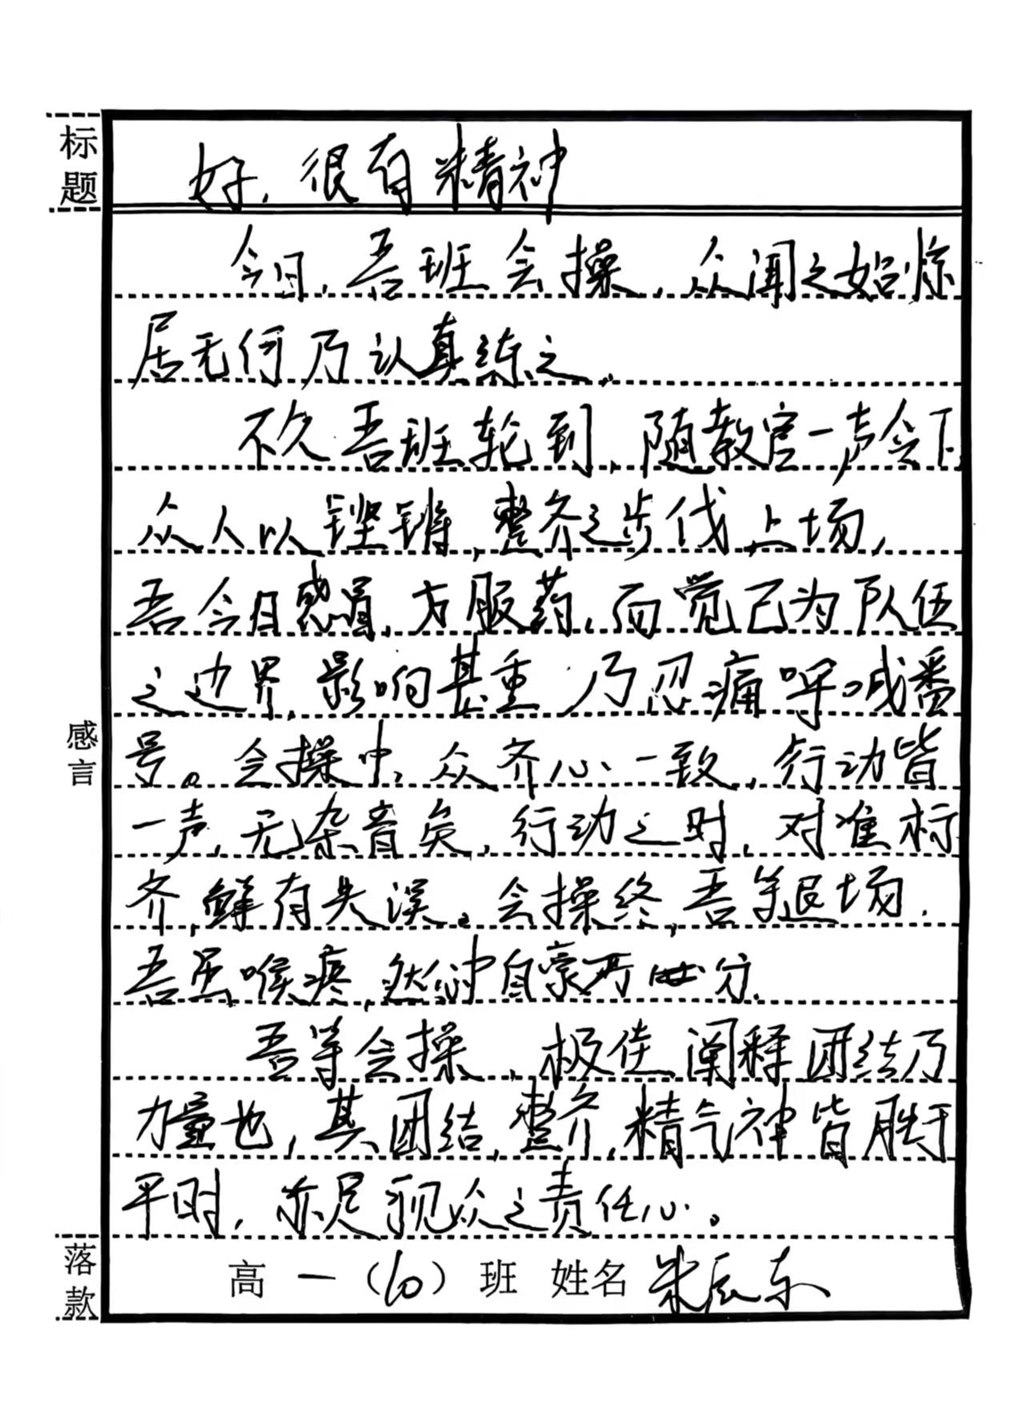 标题
好,很有精神
今日,吾班会操,众闻之始惊
居无何乃认真练之.
不久吾班轮到,随教官一声令下
众人以铿锵,整齐之步伐上场,
吾今日感冒,方服药,而觉己为队伍
之边界,影响甚重,乃忍痛呼喊番
号。会操中,众齐心一致,行动皆
一声,无杂音矣,行动之时,对准标
齐,鲜有失误。会操终,吾等退场.
吾虽喉疼,然心中自豪
吾等会操,极佳阐释团结乃
力量也,其团结,整齐,精气神皆胜于
平时,亦足现众之责任心。
感言
落款
高一(10)班 姓名 朱辰东